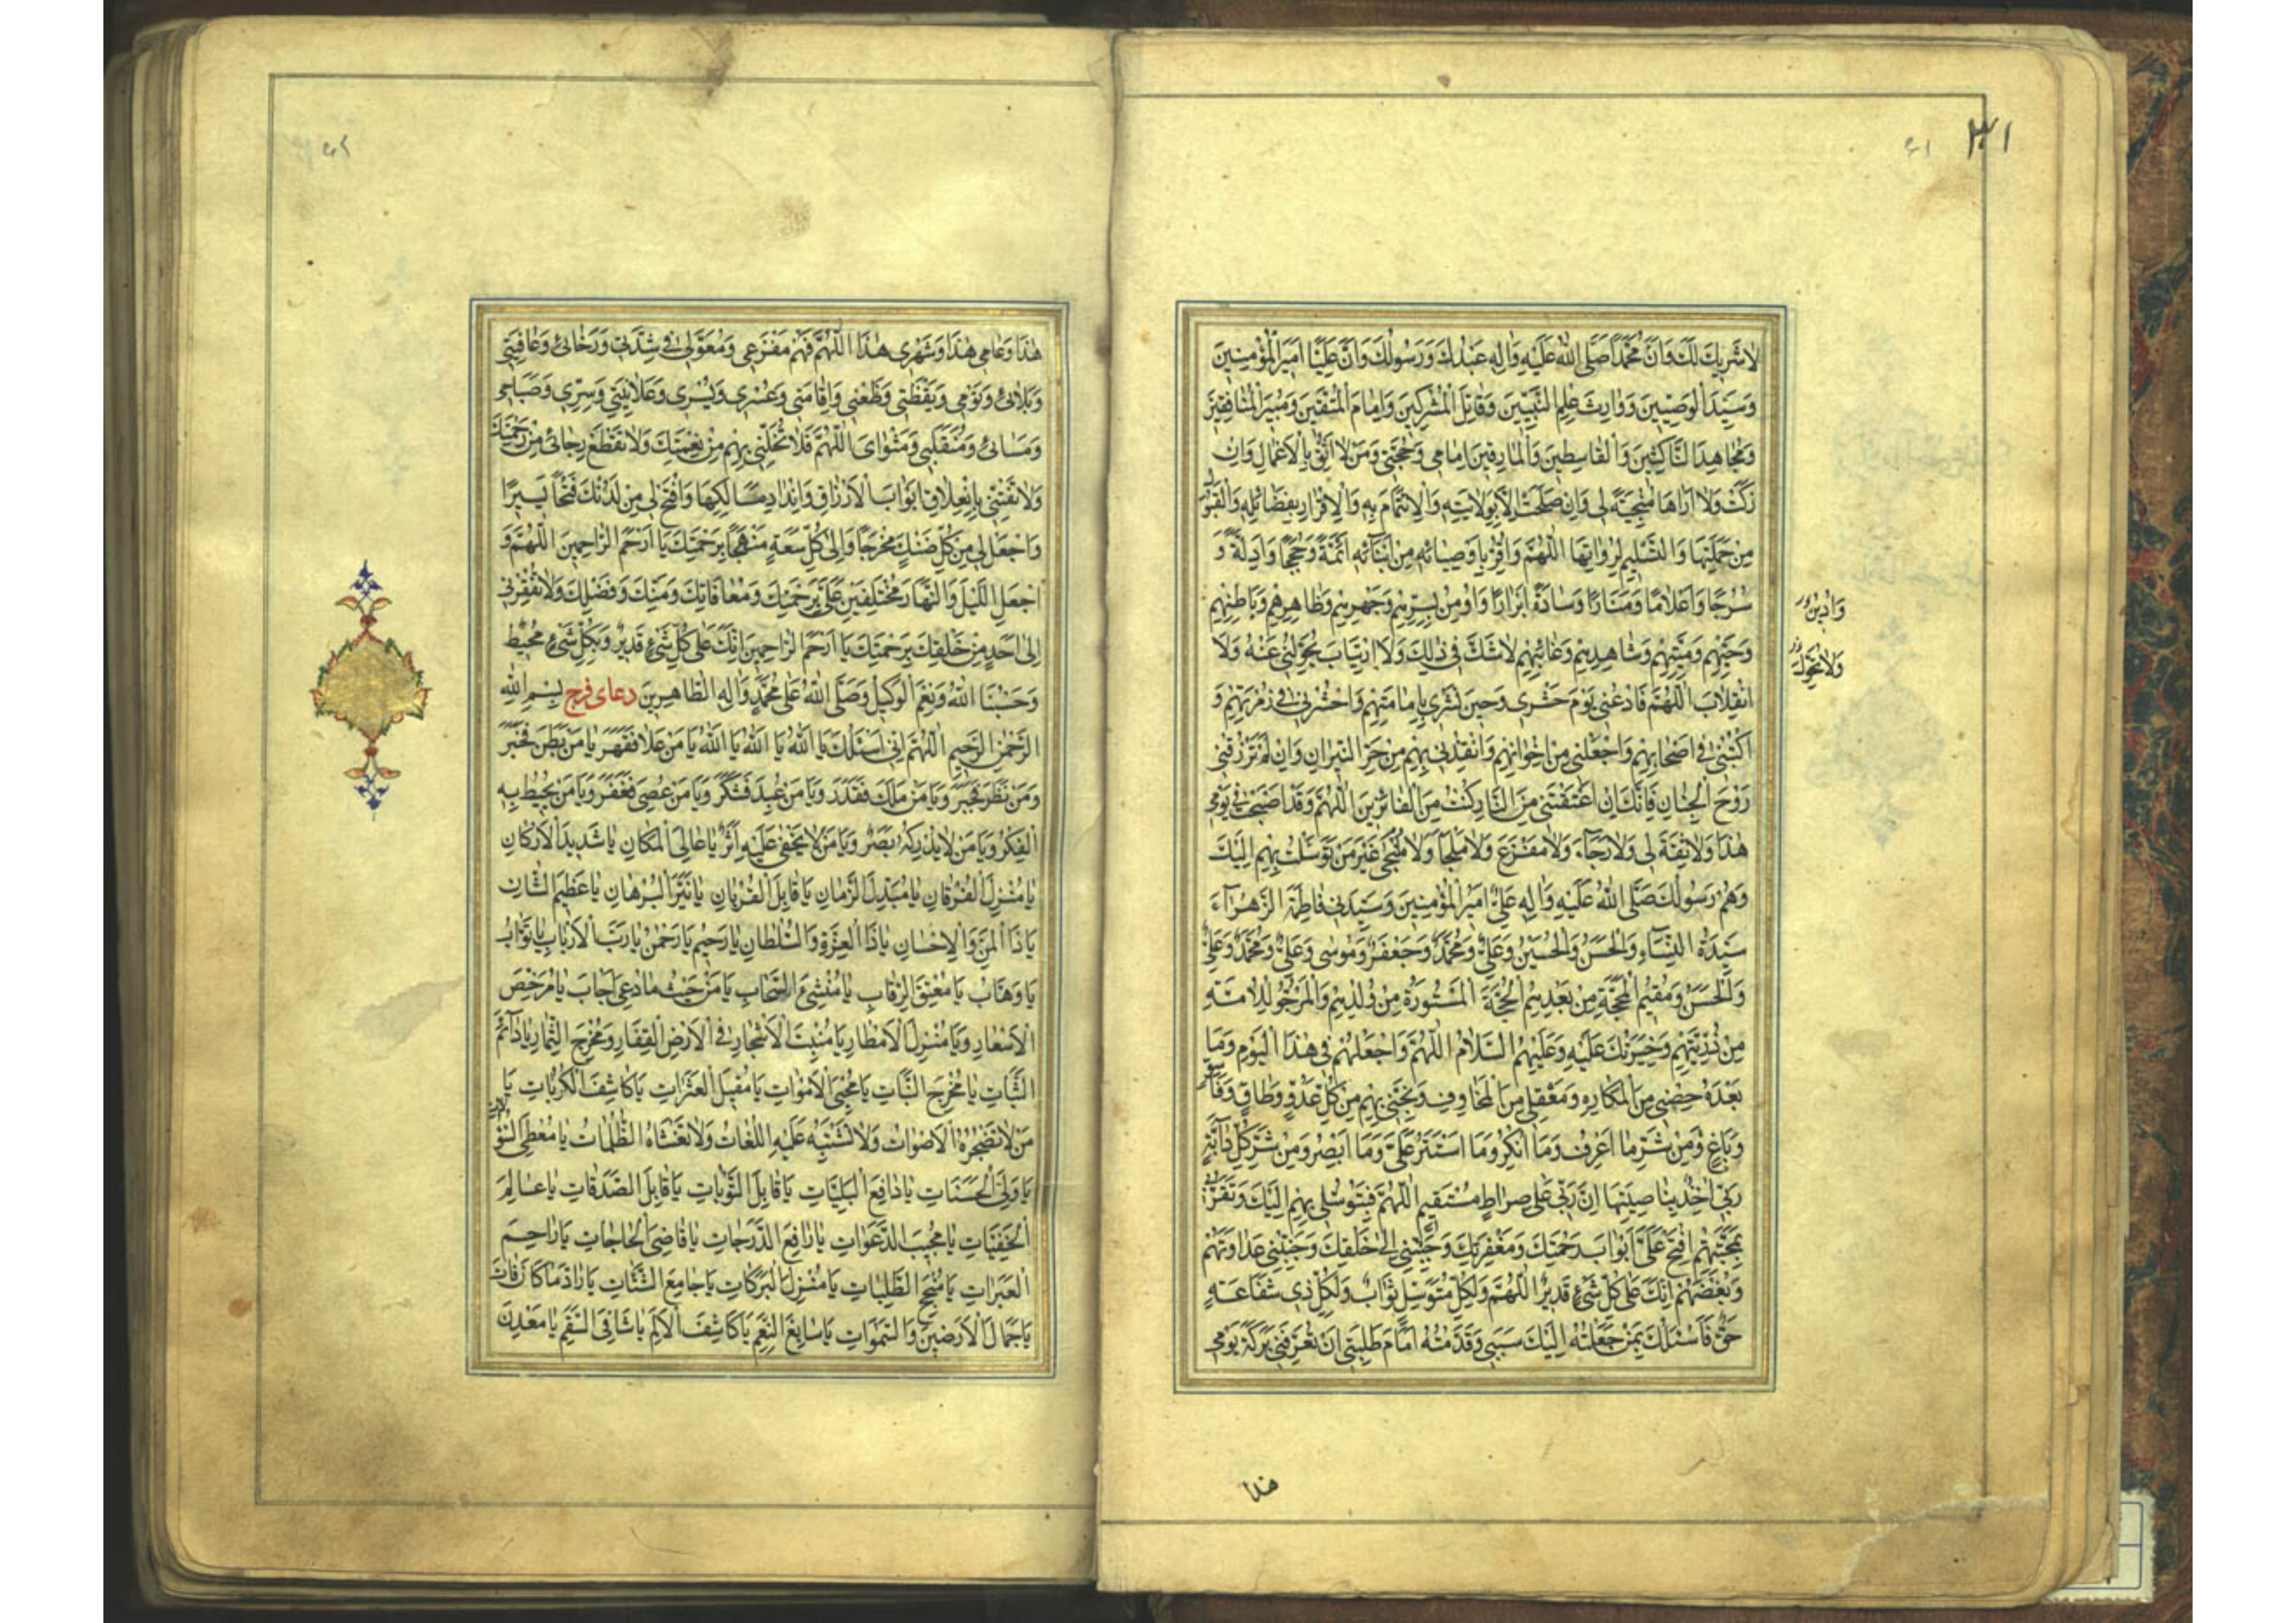 ٣١
٦١
لَا شَرِيكَ لَكَ وَاَنَّ مُحَمَّدًا صَلَّى اللهُ عَلَيْهِ وَاٰلِهِ عَبْدُكَ وَرَسُولُكَ وَاَنَّ عَلِيًّا اَمِيرُ الْمُؤْمِنِينَ
وَسَيِّدُ الْوَصِيِّينَ وَوَارِثُ عِلْمِ النَّبِيِّينَ وَقَاتِلُ الْمُشْرِكِينَ وَاِمَامُ الْمُتَّقِينَ وَمُبِيرُ الْمُنَافِقِينَ
وَمُجَاهِدُ النَّاكِثِينَ وَالْقَاسِطِينَ وَالْمَارِقِينَ اِمَامِي وَحُجَّتِي وَمَنْ لَا اَثِقُ بِالْاَعْمَالِ وَاِنْ
زَكَتْ وَلَا اَرَاهَا مُنْجِيَةً لِي وَاِنْ صَلَحَتْ اِلَّا بِوَلَايَتِهِ وَالْاِئْتِمَامِ بِهِ وَالْاِقْرَارِ بِفَضَائِلِهِ وَالْقَبُولِ
مِنْ حَمَلَتِهَا وَالتَّسْلِيمِ لِرُوَاتِهَا اَللّٰهُمَّ وَاُقِرُّ بِاَوْصِيَائِهِ مِنْ اَبْنَائِهِ اَئِمَّةً وَحُجَجًا وَاَدِلَّةً وَ
سُرُجًا وَاَعْلَامًا وَمَنَارًا وَسَادَةً اَبْرَارًا وَاُومِنُ بِسِرِّهِمْ وَجَهْرِهِمْ وَظَاهِرِهِمْ وَبَاطِنِهِمْ
وَحَيِّهِمْ وَمَيِّتِهِمْ وَشَاهِدِهِمْ وَغَائِبِهِمْ لَا شَكَّ فِي ذٰلِكَ وَلَا ارْتِيَابَ يُحَوِّلُنِي عَنْهُ وَلَا
انْقِلَابَ اَللّٰهُمَّ فَادْعُنِي يَوْمَ حَشْرِي وَحِينَ نَشْرِي بِاِمَامَتِهِمْ وَاحْشُرْنِي فِي زُمْرَتِهِمْ وَ
اكْتُبْنِي فِي اَصْحَابِهِمْ وَاجْعَلْنِي مِنْ اِخْوَانِهِمْ وَانْقِذْنِي بِهِمْ مِنْ حَرِّ النِّيرَانِ وَاِنْ لَمْ تَرْزُقْنِي
رَوْحَ الْجِنَانِ فَاِنَّكَ اِنْ اَعْتَقْتَنِي مِنَ النَّارِ كُنْتُ مِنَ الْفَائِزِينَ اَللّٰهُمَّ وَقَدْ اَصْبَحْتُ فِي يَوْمِي
هٰذَا وَلَا ثِقَةَ لِي وَلَا رَجَاءَ وَلَا مَفْزَعَ وَلَا مَلْجَأَ وَلَا مُلْتَجَى غَيْرَ مَنْ تَوَسَّلْتُ بِهِمْ اِلَيْكَ
وَهُمْ رَسُولُكَ صَلَّى اللهُ عَلَيْهِ وَاٰلِهِ عَلِيٌّ اَمِيرُ الْمُؤْمِنِينَ وَسَيِّدَتِي فَاطِمَةُ الزَّهْرَاءُ
سَيِّدَةُ النِّسَاءِ وَالْحَسَنُ وَالْحُسَيْنُ وَعَلِيٌّ وَمُحَمَّدٌ وَجَعْفَرٌ وَمُوسَى وَعَلِيٌّ وَمُحَمَّدٌ وَعَلِيٌّ
وَالْحَسَنُ وَمُقِيمُ الْمَحَجَّةِ مِنْ بَعْدِهِمْ الْحُجَّةُ الْمَسْتُورَةُ مِنْ وُلْدِهِمْ وَالْمَرْجُوُّ لِلْاُمَّةِ
مِنْ ذُرِّيَّتِهِمْ وَخِيَرَتُكَ عَلَيْهِ وَعَلَيْهِمُ السَّلَامُ اَللّٰهُمَّ وَاجْعَلْهُمْ فِي هٰذَا الْيَوْمِ وَمَا
بَعْدَهُ حِصْنِي مِنَ الْمَكَارِهِ وَمَعْقِلِي مِنَ الْمَخَاوِفِ وَنَجِّنِي بِهِمْ مِنْ كُلِّ عَدُوٍّ وَطَاغٍ وَفَاسِقٍ
وَبَاغٍ وَمِنْ شَرِّ مَا اَعْرِفُ وَمَا اُنْكِرُ وَمَا اسْتَتَرَ عَلَيَّ وَمَا اُبْصِرُ وَمِنْ شَرِّ كُلِّ دَابَّةٍ
رَبِّي اٰخِذٌ بِنَاصِيَتِهَا اِنَّ رَبِّي عَلَى صِرَاطٍ مُسْتَقِيمٍ اَللّٰهُمَّ فَبِتَوَسُّلِي بِهِمْ اِلَيْكَ وَتَقَرُّبِي
بِمَحَبَّتِهِمْ افْتَحْ عَلَيَّ اَبْوَابَ رَحْمَتِكَ وَمَغْفِرَتِكَ وَحَبِّبْنِي اِلَى خَلْقِكَ وَجَنِّبْنِي عَدَاوَتَهُمْ
وَبُغْضَهُمْ اِنَّكَ عَلَى كُلِّ شَيْءٍ قَدِيرٌ اَللّٰهُمَّ وَلِكُلِّ مُتَوَسِّلٍ ثَوَابٌ وَلِكُلِّ ذِي شَفَاعَةٍ
حَقٌّ فَاَسْئَلُكَ بِمَنْ جَعَلْتُهُ اِلَيْكَ سَبَبِي وَقَدَّمْتُهُ اَمَامَ طَلِبَتِي اَنْ تُعَرِّفَنِي بَرَكَةَ يَوْمِي
وَاَدِينُ
وَلَا تَحَوُّلَ
هذا
هٰذَا وَعَامِي هٰذَا وَشَهْرِي هٰذَا اَللّٰهُمَّ فَهُمْ مَفْزَعِي وَمُعَوَّلِي فِي شِدَّتِي وَرَخَائِي وَعَافِيَتِي
وَبَلَائِي وَنَوْمِي وَيَقْظَتِي وَظَعْنِي وَاِقَامَتِي وَعُسْرِي وَيُسْرِي وَعَلَانِيَتِي وَسِرِّي وَصَبَاحِي
وَمَسَائِي وَمُنْقَلَبِي وَمَثْوَايَ اَللّٰهُمَّ فَلَا تُخَلِّنِي بِهِمْ مِنْ نِعْمَتِكَ وَلَا تَقْطَعْ رَجَائِي مِنْ رَحْمَتِكَ
وَلَا تَفْتِنِّي بِاِنْغِلَاقِ اَبْوَابِ الْاَرْزَاقِ وَانْسِدَادِ مَسَالِكِهَا وَافْتَحْ لِي مِنْ لَدُنْكَ فَتْحًا يَسِيرًا
وَاجْعَلْ لِي مِنْ كُلِّ ضَنْكٍ مَخْرَجًا وَاِلَى كُلِّ سَعَةٍ مَنْهَجًا بِرَحْمَتِكَ يَا اَرْحَمَ الرَّاحِمِينَ اَللّٰهُمَّ وَ
اجْعَلِ اللَّيْلَ وَالنَّهَارَ مُخْتَلِفَيْنِ عَلَيَّ بِرَحْمَتِكَ وَمُعَافَاتِكَ وَمَنِّكَ وَفَضْلِكَ وَلَا تُفْقِرْنِي
اِلَى اَحَدٍ مِنْ خَلْقِكَ بِرَحْمَتِكَ يَا اَرْحَمَ الرَّاحِمِينَ اِنَّكَ عَلَى كُلِّ شَيْءٍ قَدِيرٌ وَبِكُلِّ شَيْءٍ مُحِيطٌ
وَحَسْبُنَا اللهُ وَنِعْمَ الْوَكِيلُ وَصَلَّى اللهُ عَلَى مُحَمَّدٍ وَاٰلِهِ الطَّاهِرِينَ دعای فرج بِسْمِ اللهِ
الرَّحْمٰنِ الرَّحِيمِ اَللّٰهُمَّ اِنِّي اَسْئَلُكَ يَا اَللهُ يَا اَللهُ يَا اَللهُ يَا مَنْ عَلَا فَقَهَرَ يَا مَنْ بَطَنَ فَخَبَرَ
وَمَنْ نَظَرَ فَخَبَرَ وَيَا مَنْ مَلَكَ فَقَدَرَ وَيَا مَنْ عُبِدَ فَشَكَرَ وَيَا مَنْ عُصِيَ فَغَفَرَ وَيَا مَنْ يُحِيطُ بِهِ
الْفِكَرُ وَيَا مَنْ لَا يُدْرِكُهُ بَصَرٌ وَيَا مَنْ لَا يَخْفَى عَلَيْهِ اَثَرٌ يَا عَالِيَ الْمَكَانِ يَا شَدِيدَ الْاَرْكَانِ
يَا مُنْزِلَ الْفُرْقَانِ يَا مُبَدِّلَ الزَّمَانِ يَا قَابِلَ الْقُرْبَانِ يَا نَيِّرَ الْبُرْهَانِ يَا عَظِيمَ الشَّانِ
يَا ذَا الْمَنِّ وَالْاِحْسَانِ يَا ذَا الْعِزَّةِ وَالسُّلْطَانِ يَا رَحِيمُ يَا رَحْمٰنُ يَا رَبَّ الْاَرْبَابِ يَا تَوَّابُ
يَا وَهَّابُ يَا مُعْتِقَ الرِّقَابِ يَا مُنْشِئَ السَّحَابِ يَا مَنْ حَيْثُ مَا دُعِيَ اَجَابَ يَا مُرَخِّصَ
الْاَسْعَارِ وَيَا مُنْزِلَ الْاَمْطَارِ يَا مُنْبِتَ الْاَشْجَارِ فِي الْاَرْضِ الْقِفَارِ وَمُخْرِجَ الثِّمَارِ يَا دَائِمَ
الثَّبَاتِ يَا مُخْرِجَ النَّبَاتِ يَا مُحْيِيَ الْاَمْوَاتِ يَا مُقِيلَ الْعَثَرَاتِ يَا كَاشِفَ الْكُرُبَاتِ يَا
مَنْ لَا تُضْجِرُهُ الْاَصْوَاتُ وَلَا تَشْتَبِهُ عَلَيْهِ اللُّغَاتُ وَلَا تَغْشَاهُ الظُّلُمَاتُ يَا مُعْطِيَ السُّؤْلَاتِ
يَا وَلِيَّ الْحَسَنَاتِ يَا دَافِعَ الْبَلِيَّاتِ يَا قَابِلَ التَّوْبَاتِ يَا قَابِلَ الصَّدَقَاتِ يَا عَالِمَ
الْخَفِيَّاتِ يَا مُجِيبَ الدَّعَوَاتِ يَا رَافِعَ الدَّرَجَاتِ يَا قَاضِيَ الْحَاجَاتِ يَا رَاحِمَ
الْعَبَرَاتِ يَا مُنْجِحَ الطَّلِبَاتِ يَا مُنْزِلَ الْبَرَكَاتِ يَا جَامِعَ الشَّتَاتِ يَا رَادَّ مَا كَانَ فَاتَ
يَا جَمَالَ الْاَرَضِينَ وَالسَّمٰوَاتِ يَا سَابِغَ النِّعَمِ يَا كَاشِفَ الْاَلَمِ يَا شَافِيَ السَّقَمِ يَا مَعْدِنَ